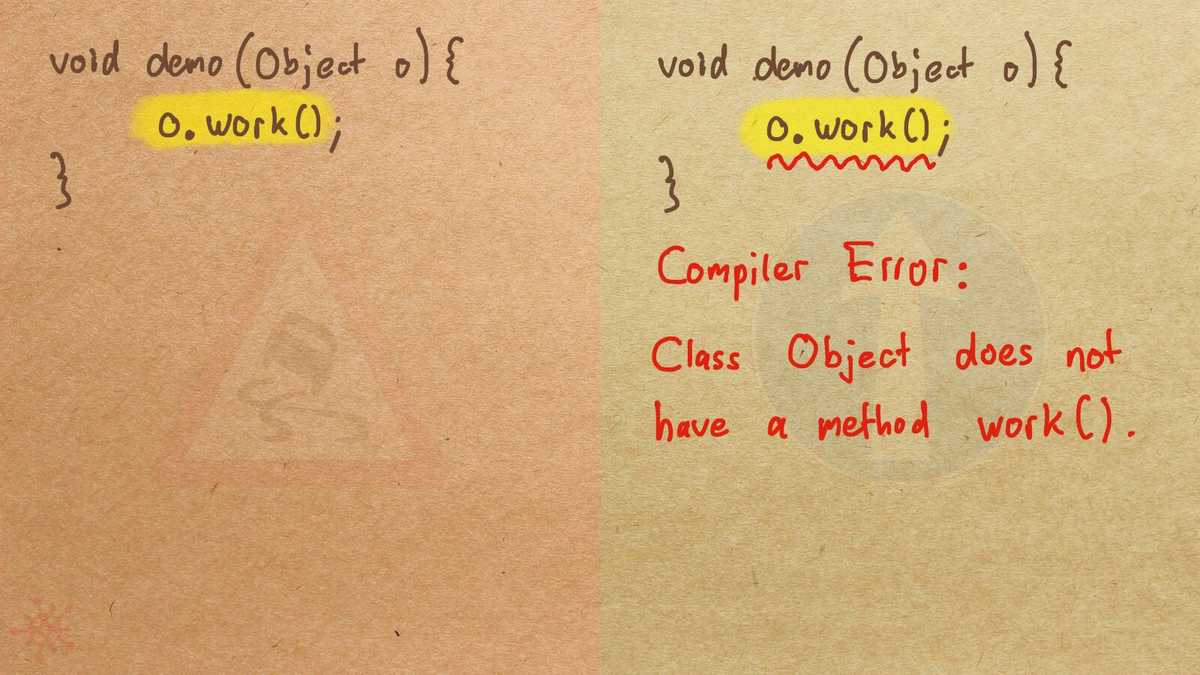 void demo(Object o){
o.work();
}
void demo(Object o){
o.work();
}
Compiler Error:
Class Object does not
have a method work().